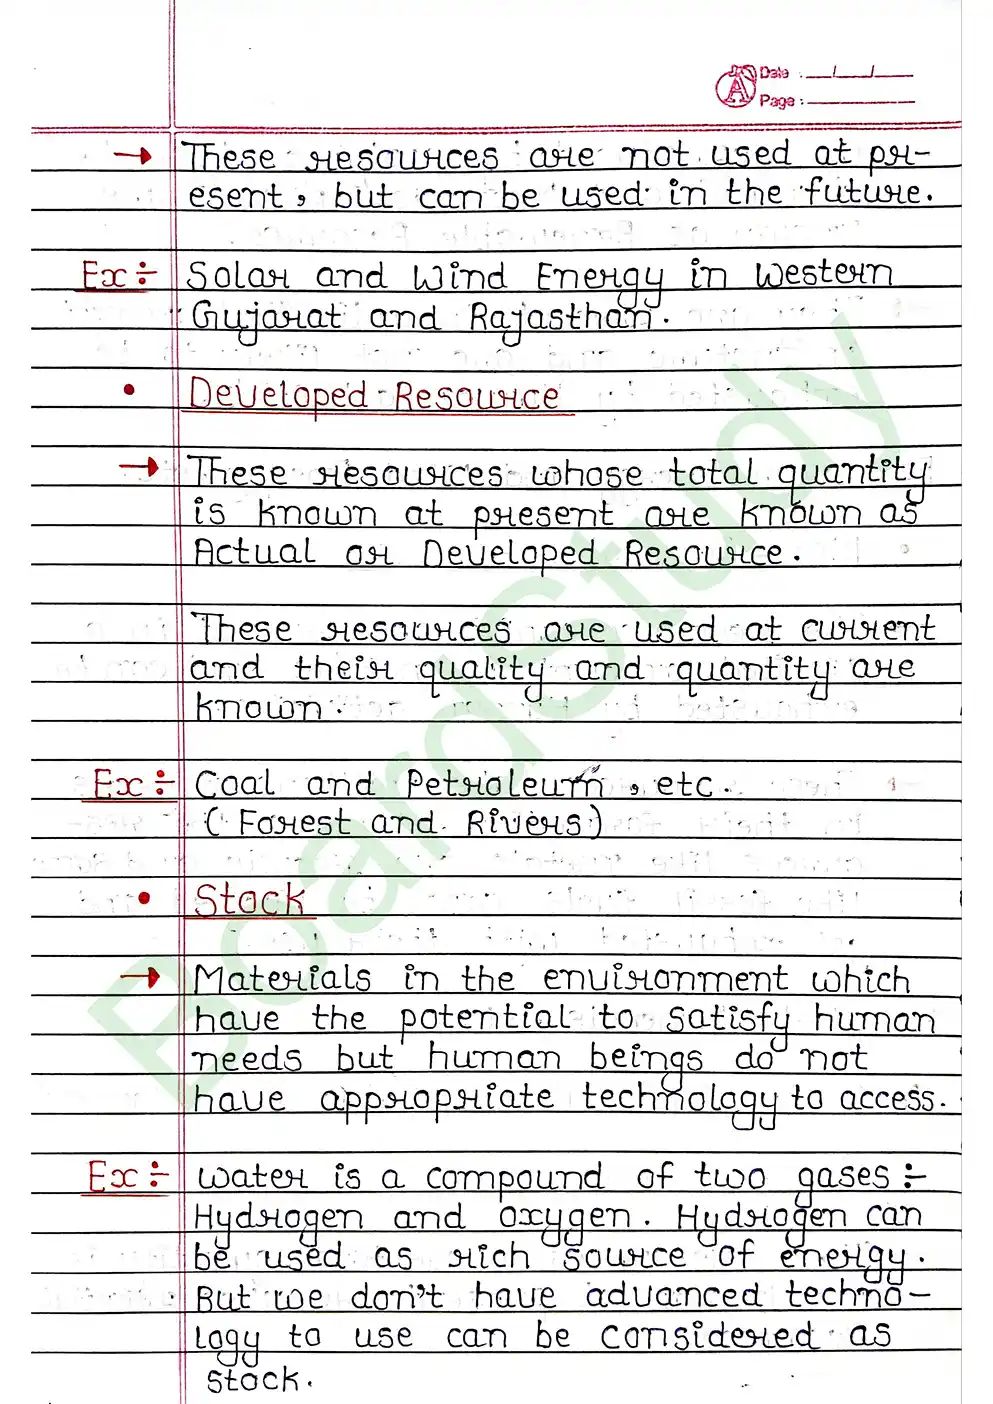 Date : __/__/__
Page :
→ These resources are not used at pr-
esent, but can be used in the future.
Ex÷ Solar and Wind Energy in Western
Gujarat and Rajasthan.
• Developed Resource
→ These resources whose total quantity
is known at present are known as
Actual or Developed Resource.
These resources are used at current
and their quality and quantity are
known.
Ex÷ Coal and Petroleum, etc.
(Forest and Rivers)
• Stock
→ Materials in the environment which
have the potential to satisfy human
needs but human beings do not
have appropriate technology to access.
Ex÷ Water is a compound of two gases :-
Hydrogen and oxygen. Hydrogen can
be used as rich source of energy.
But we don't have advanced techno-
logy to use can be considered as
stock.
BoardStudy